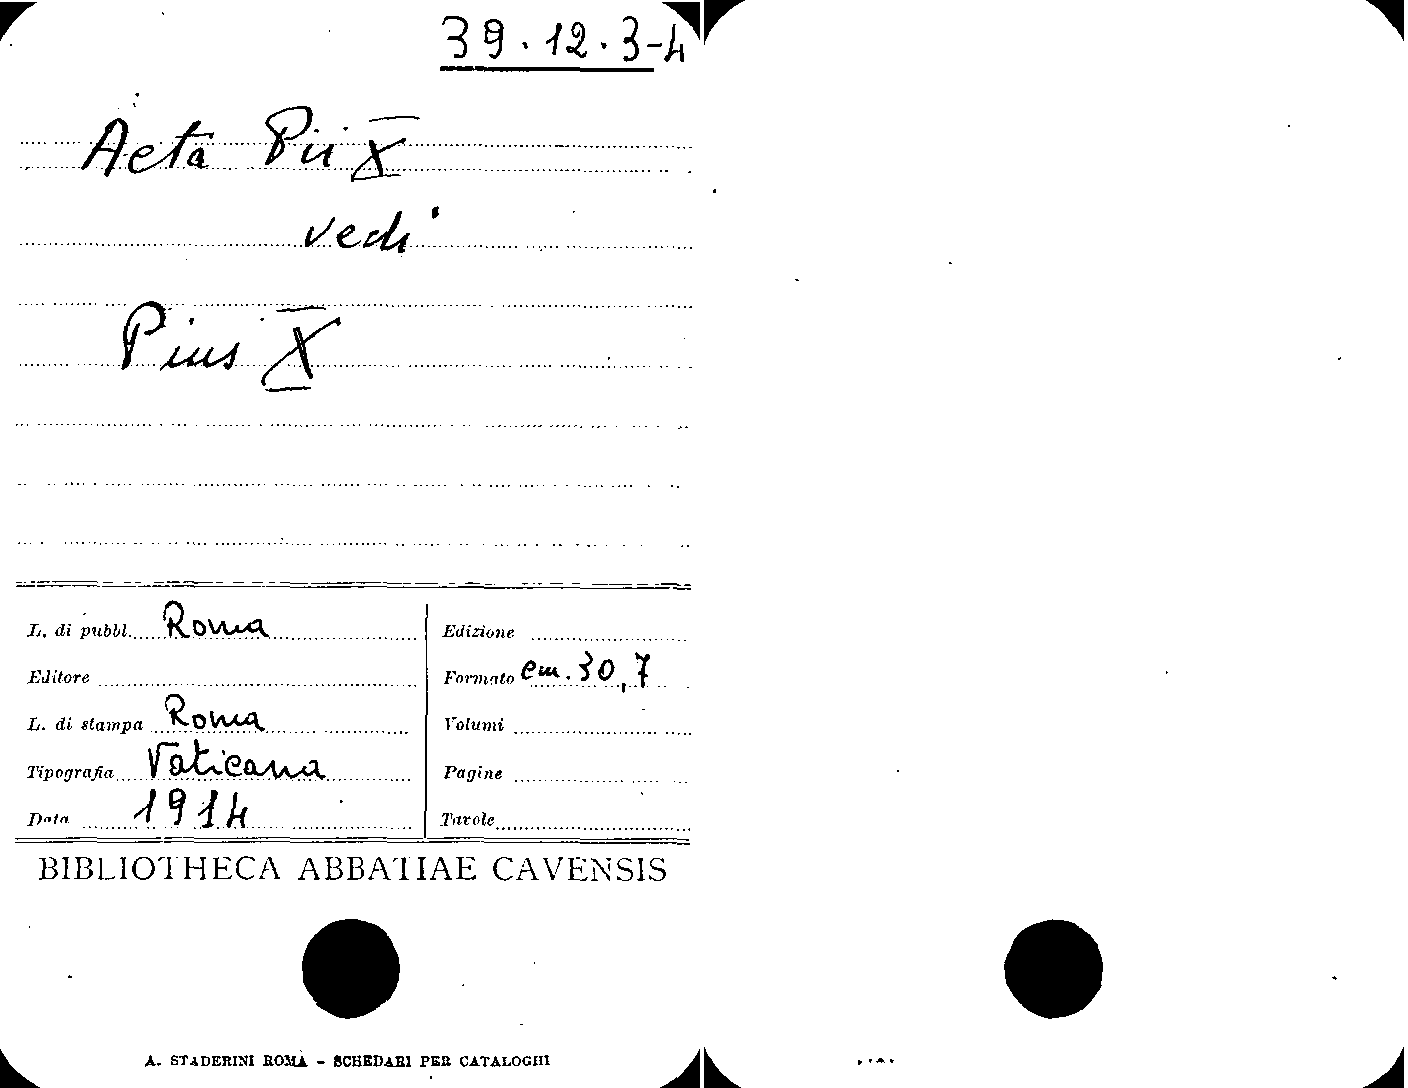 39.12.3-4
Acta Pii X
vedi
Pius X
L. di pubbl. Roma
Edizione
Editore
Formato cm. 30,7
L. di stampa Roma
Volumi
Tipografia Vaticana
Pagine
Data 1914
Tavole
BIBLIOTHECA ABBATIAE CAVENSIS
A. STADERINI ROMA - SCHEDARI PER CATALOGHI